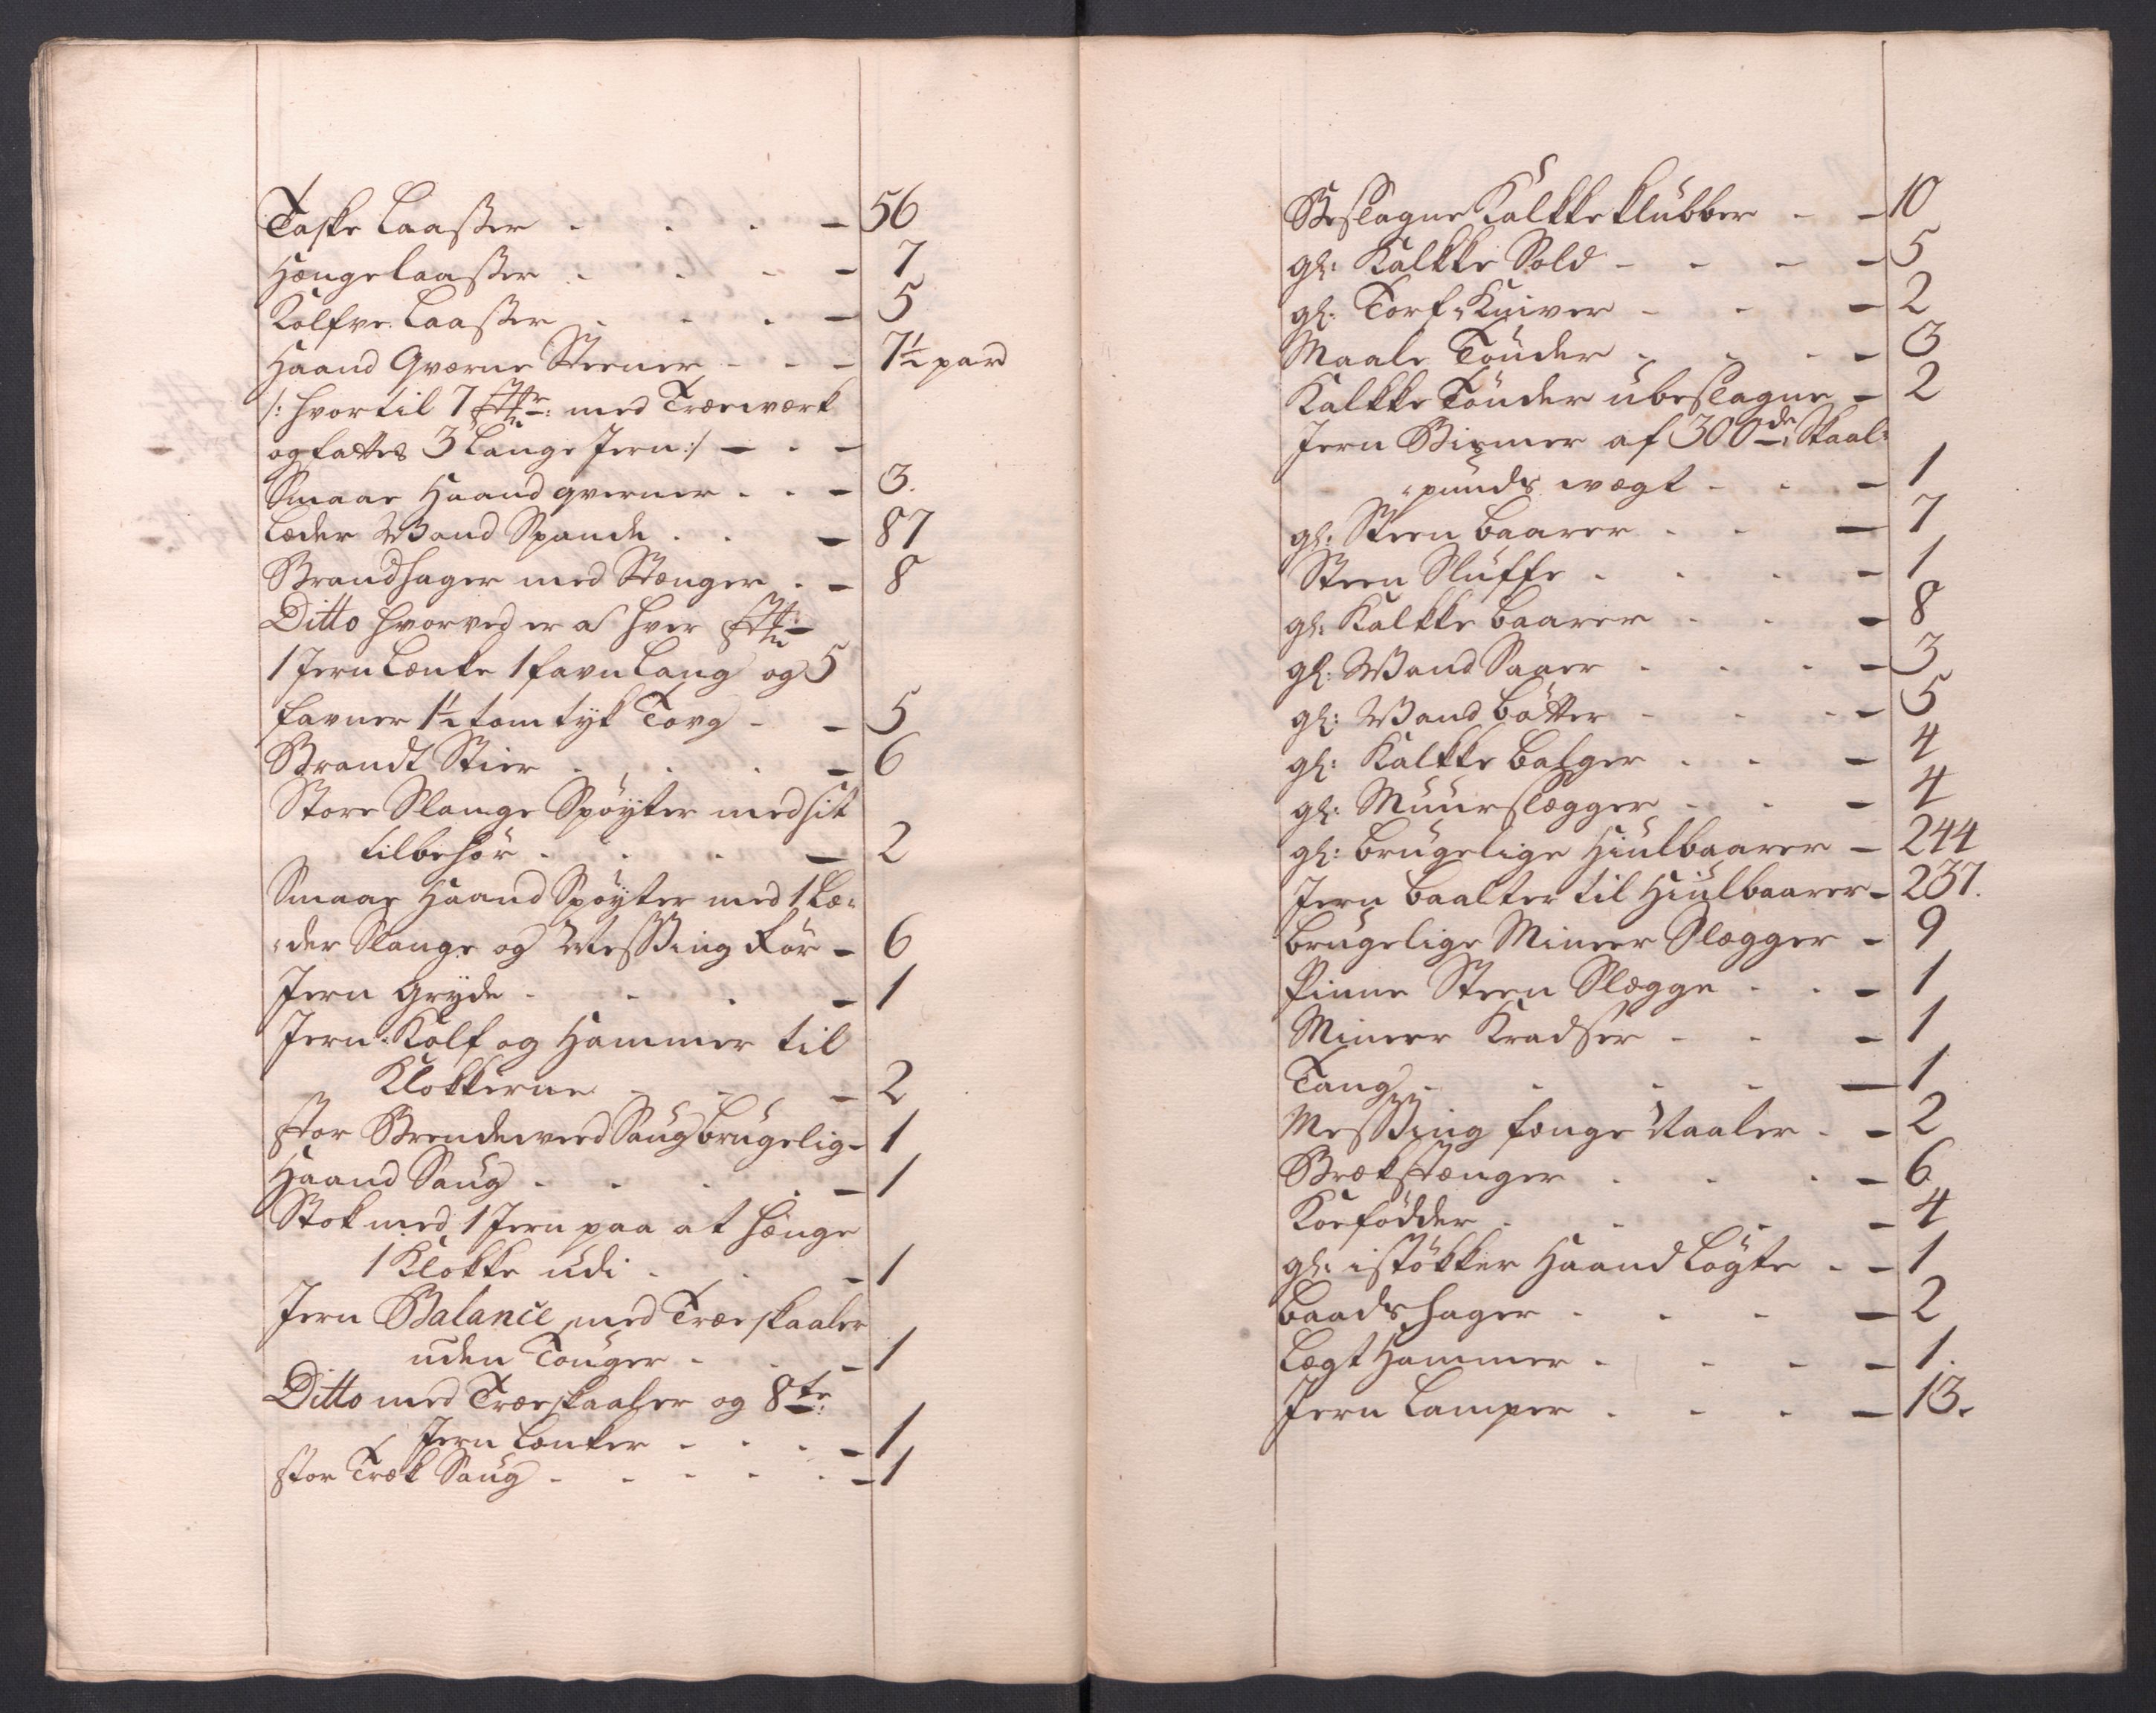 Taske Laaßer - - - - 56
Hængelaaßer - - - - 7
Kolfve Laaßer - - - - 5
Haand Qværne Steener - - - 7½ par
/: hvortil 7 med Træewærk
og fattes 3 Lange Jern :/ - - -
Smaae Haand qverner - - - 3.
Læder Wand Spande - - - 87
Brandhager med Stænger - - 8
Ditto hvorved er a hver
1 Jern Lænke 1 favn Lang og 5
favner 1½ tom tyk Tovg - - 5
Brandt Stier - - - - 6
Store Slange Spøyter med sit
tilbehör - - - - 2
Smaae Haand Spøyter med 1 Læ-
der Slange og Messing Rör - 6
Jern Gryde - - - - 1
Jern Kolf og Hammer til
Klokkerne - - - 2
stor Brendeweed Saug brugelig - 1
Haand Saug - - - - 1
Stok med 1 Jern paa at hænge
1 Klokke udi - - - 1
Jern Balance med Træe skaaler
uden Touger - - - 1
Ditto med Træe skaaler og 8te
Jern Lænker - - - - 1
stor Træk Saug - - - - - 1
Beslagne Kalkke klubber - - 10
gl: Kalkke Sold - - - - 5
gl: Torf Kniver - - - 2
Maale Tönder - - - - 3
Kalkke Tönder ubeslagne - 2
Jern Bismer af 300de Skaal-
punds wægt - - - 1
gl: Steen baarer - - - 7
Steen Sluffe - - - - 1
gl: Kalkke baarer - - - 8
gl: Wand Saaer - - - - 3
gl: Wand bötter - - - - 5
gl: Kalkke balger - - - 4
gl: Muurslægger - - - 4
gl: brugelige Hiulbaarer - 244
Jern baalter til Hiulbaarer - 237.
brugelige Mineer Slægger - 9
Pinne Steen Slægge - - - 1
Mineer Kradser - - - 1
Tang - - - - - 1
Messing fænge Naaler - - 2
Brækstænger - - - - 6
Koefödder - - - - 4
gl: istökker Haand Lögte - - 1
baadshager - - - - 2
Lægt Hammer - - - - 1.
Jern Lamper - - - - 13.